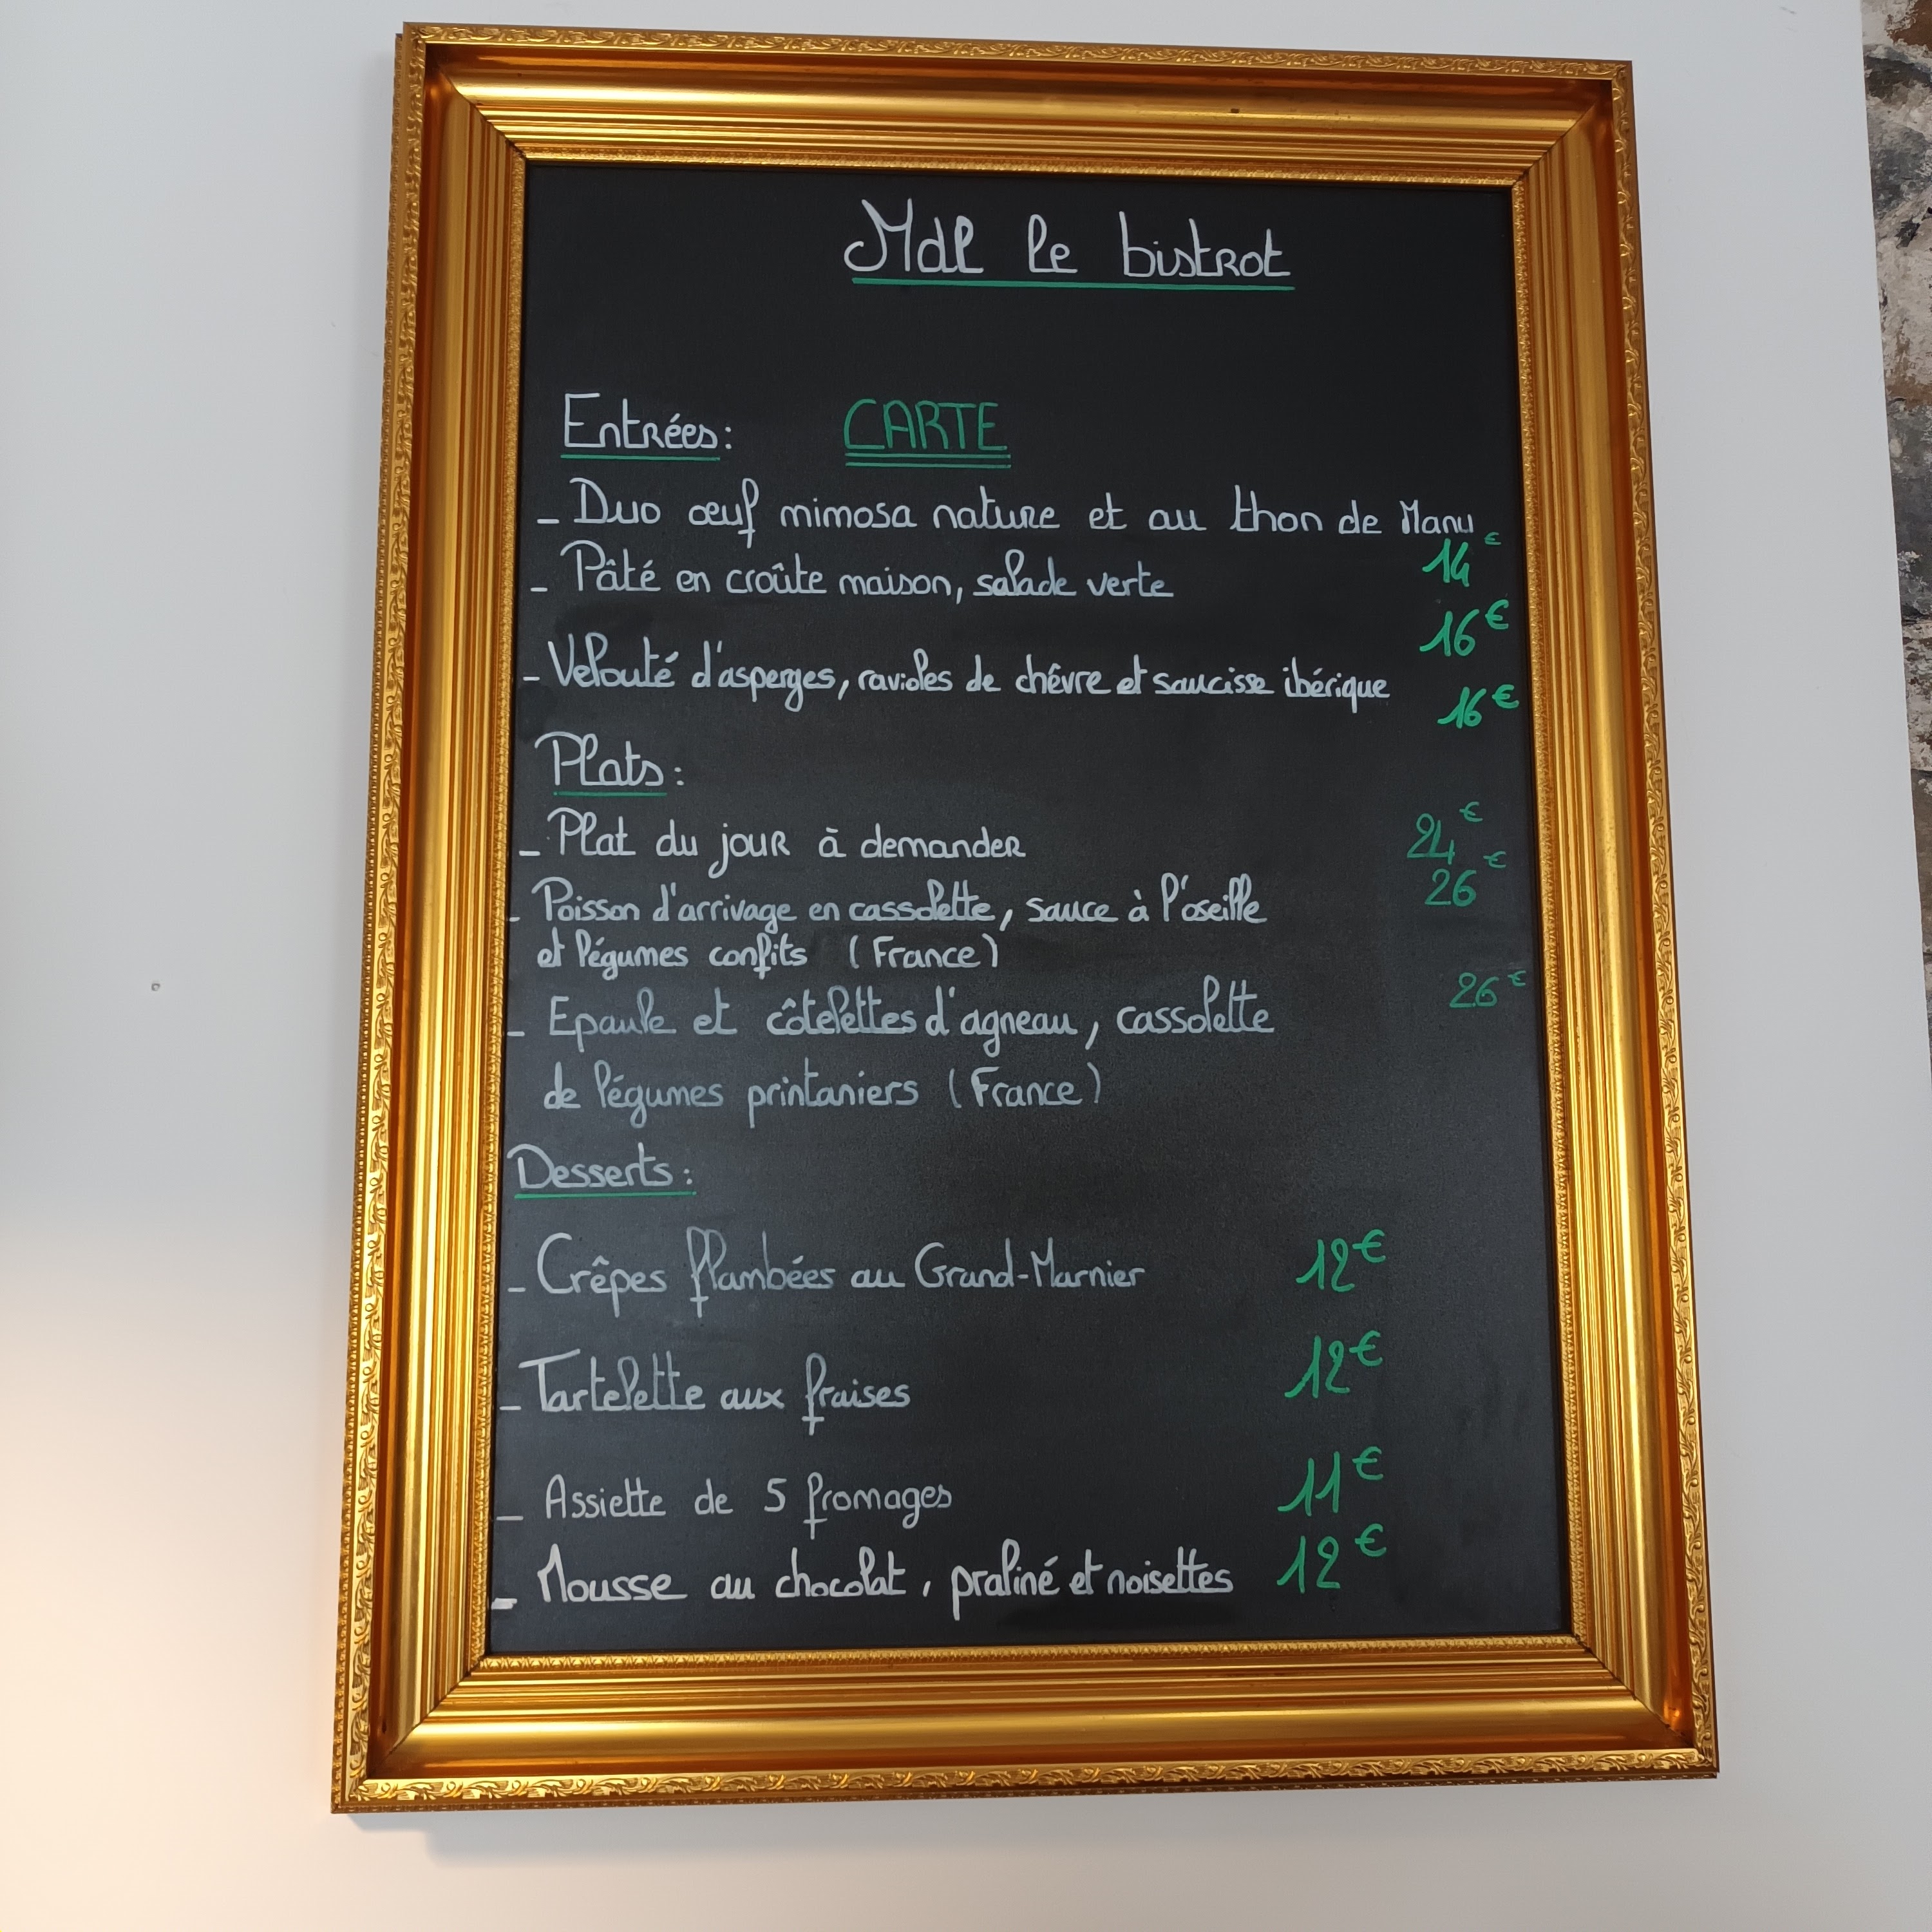 Mdl le bistrot
Entrées: CARTE
- Duo œuf mimosa nature et au thon de Manu
14€
- Pâté en croûte maison, salade verte
16€
- Velouté d'asperges, ravioles de chèvre et saucisse ibérique
16€
Plats:
- Plat du jour à demander 24€
- Poisson d'arrivage en cassolette, sauce à l'oseille 26€
et légumes confits (France)
- Epaule et côtelettes d'agneau, cassolette 26€
de légumes printaniers (France)
Desserts:
- Crêpes flambées au Grand-Marnier 12€
- Tartelette aux fraises 12€
- Assiette de 5 fromages 11€
- Mousse au chocolat, praliné et noisettes 12€